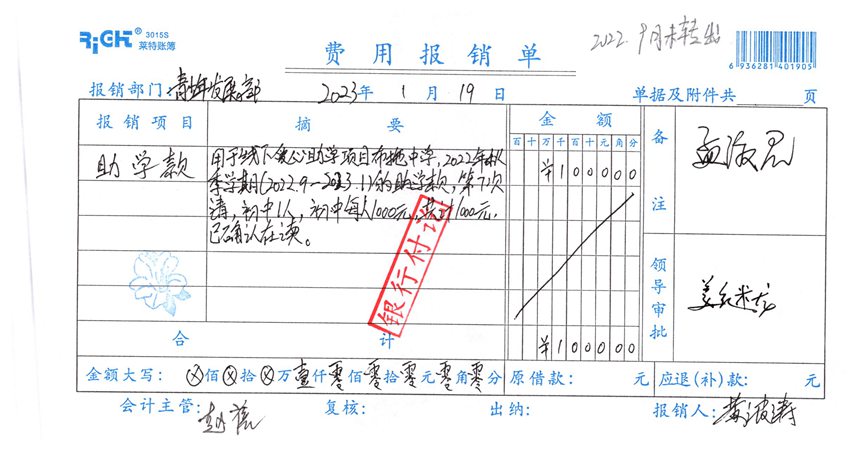 RiGHT 3015S
莱特账簿
费用报销单
2022.9月未转出
6 936281 401905
报销部门:青少年发展部
2023年 1月 19日
单据及附件共 页
报销项目 摘要 金额
百十万千百十元角分
助学款
用于线下爱心助学项目布拖中学,2022年秋
季学期(2022.9-2023.1)的助学款,第7次
请,初中1人,初中每人1000元,共计1000元,
已确认在读。
¥100000
备注
领导审批
银行付讫
合计
¥100000
金额大写:ⓧ佰ⓧ拾ⓧ万壹仟零佰零拾零元零角零分
原借款: 元
应退(补)款: 元
会计主管:
复核:
出纳:
报销人: